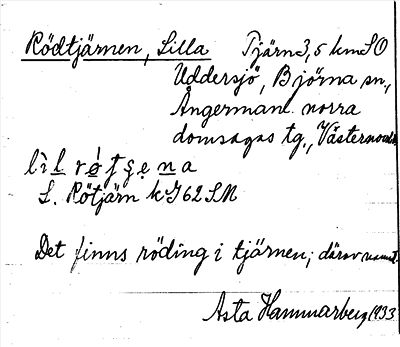 Rödtjärnen, Lilla Tjärn 3,5 km SO
Uddersjö, Björna sn,
Ångermanl. norra
domsagas tg., Västernorrl.
L. Rötjärn kJ62SM
Det finns röding i tjärnen; därav namnet.
Asta Hammarberg 1933